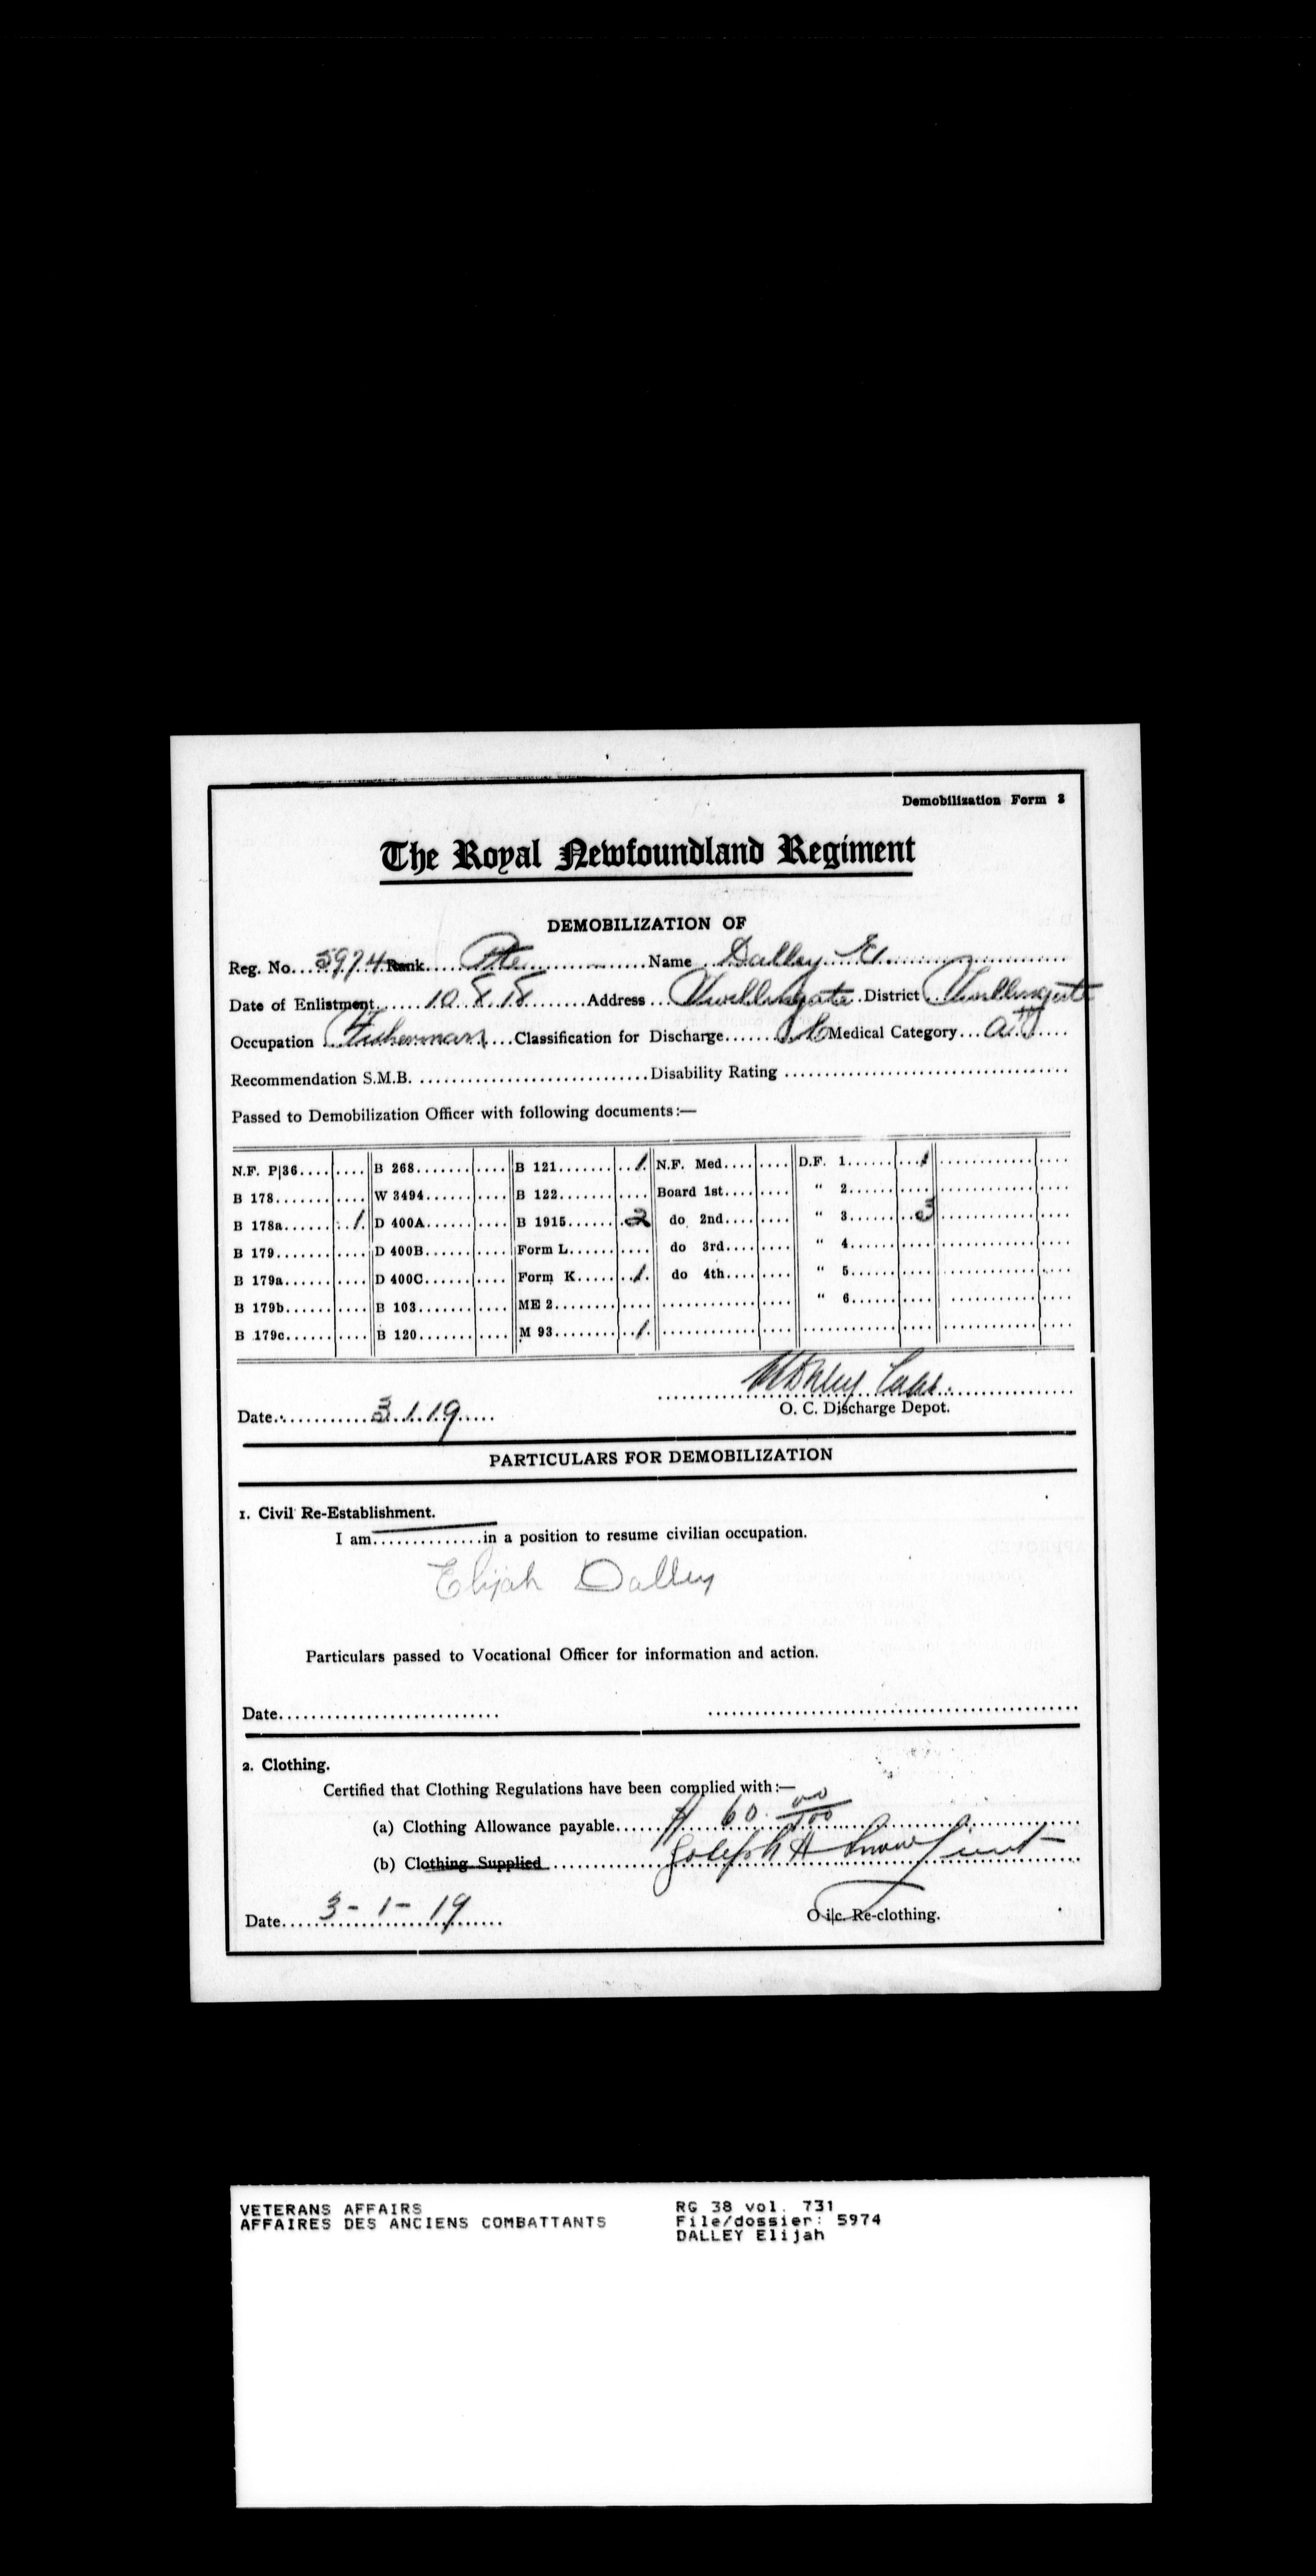 Demobilization Form 3
The Royal Newfoundland Regiment
DEMOBILIZATION OF
Reg. No. 5974 Rank Pte Name Dalley E.
Date of Enlistment 10.8.18 Address Twillingate District Twillingate
Occupation Fisherman Classification for Discharge Medical Category
Recommendation S.M.B. Disability Rating
Passed to Demobilization Officer with following documents:—
N.F. P|36 B 268 B 121 1 N.F. Med. D.F. 1 1
B 178 W 3494 B 122 Board 1st " 2
B 178a 1 D 400A B 1915 2 do 2nd " 3 3
B 179 D 400B Form L do 3rd " 4
B 179a D 400C Form K 1 do 4th " 5
B 179b B 103 ME 2 " 6
B 179c B 120 M 93 1
Date 3.1.19 O. C. Discharge Depot.
PARTICULARS FOR DEMOBILIZATION
1. Civil Re-Establishment.
I am in a position to resume civilian occupation.
Elijah Dalley
Particulars passed to Vocational Officer for information and action.
Date
2. Clothing.
Certified that Clothing Regulations have been complied with:—
(a) Clothing Allowance payable $ 60 00/100
(b) Clothing Supplied Joseph H Snow Lieut
Date 3-1-19 O i|c. Re-clothing.
VETERANS AFFAIRS RG 38 vol. 731
AFFAIRES DES ANCIENS COMBATTANTS File/dossier: 5974
DALLEY Elijah